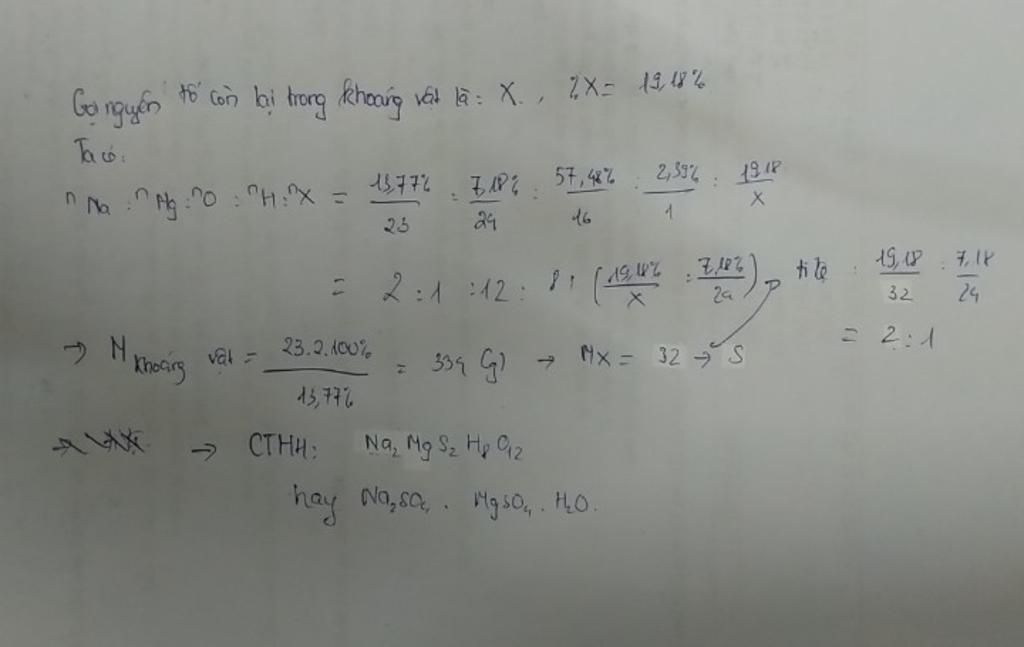 Gọi nguyên tố còn lại trong khoáng vật là: X., %X = 19,18%
Ta có:
nNa : nMg : nO : nH : nX = 13,77%/23 : 7,18%/24 : 57,48%/16 : 2,39%/1 : 19,18/X
= 2 : 1 : 12 : 8 : (19,18%/X : 7,18%/24) tỉ lệ : 19,18/32 : 7,18/24
= 2 : 1
→ M khoáng vật = 23.2.100%/13,77% = 334 (g) → MX = 32 → S
→ CTHH: Na2MgS2H8O12
hay Na2SO4 . MgSO4 . H2O.